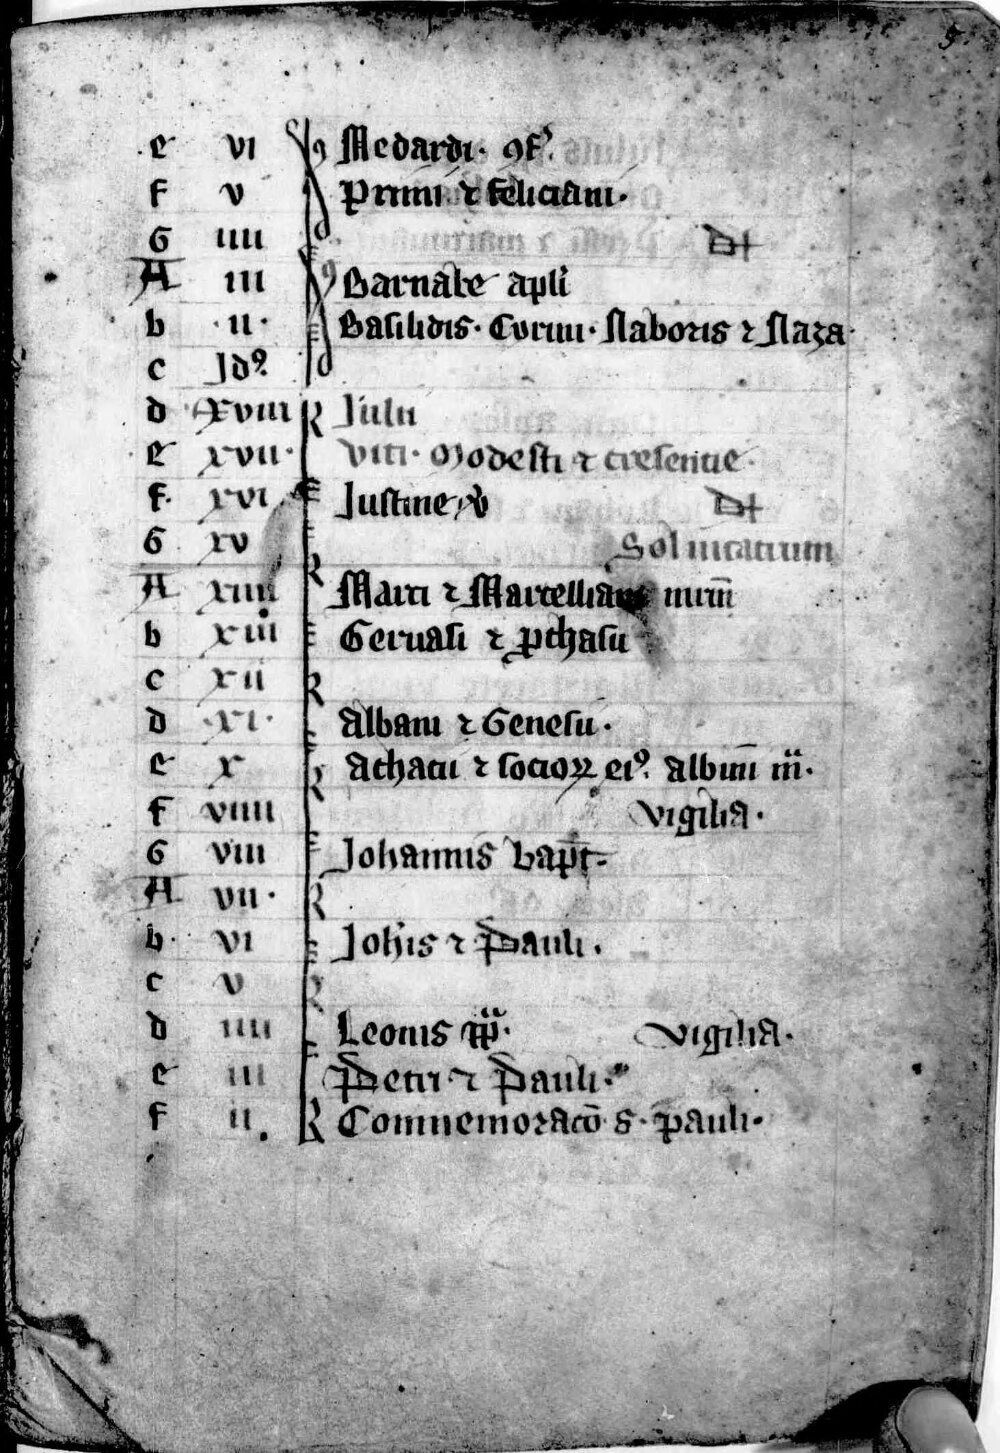 5
e vi Medardi · ꝯf̾.
f v Primi ⁊ feliciani·
G iiii D
A iii Barnabe apl̾i
b ·ii· Basilidis· Cyrini· Naboris ⁊ Naza·
c Jdꝰ
d xviii Julii
e xvii· Viti· Modesti ⁊ cresentie·
f· xvi Justine D
G xv Sol in cancrum
A xiiii Marci ⁊ Marcelliani
b xiii Geruasi ⁊ ꝓthasii
c xii
d ·xi· Albani ⁊ Genesii·
e x Achacii ⁊ socioꝝ eiꝰ. Albini m̄·
f viiii Vigilia·
G viii Johannis bapt̄·
A vii·
b· vi Joh̄is ⁊ Pauli·
c v
d iiii Leonis pp̄· Vigilia·
e iii Petri ⁊ Pauli·
f ii. Commemoracō S· pauli·